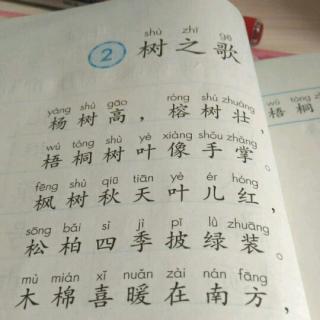 shù zhī gē
2 树之歌
yáng shù gāo róng shù zhuàng
杨树高，榕树壮，
wú tóng shù yè xiàng shǒu zhǎng
梧桐树叶像手掌。
fēng shù qiū tiān yè ér hóng
枫树秋天叶儿红，
sōng bǎi sì jì pī lǜ zhuāng
松柏四季披绿装。
mù mián xǐ nuǎn zài nán fāng
木棉喜暖在南方，
wú tóng
梧桐